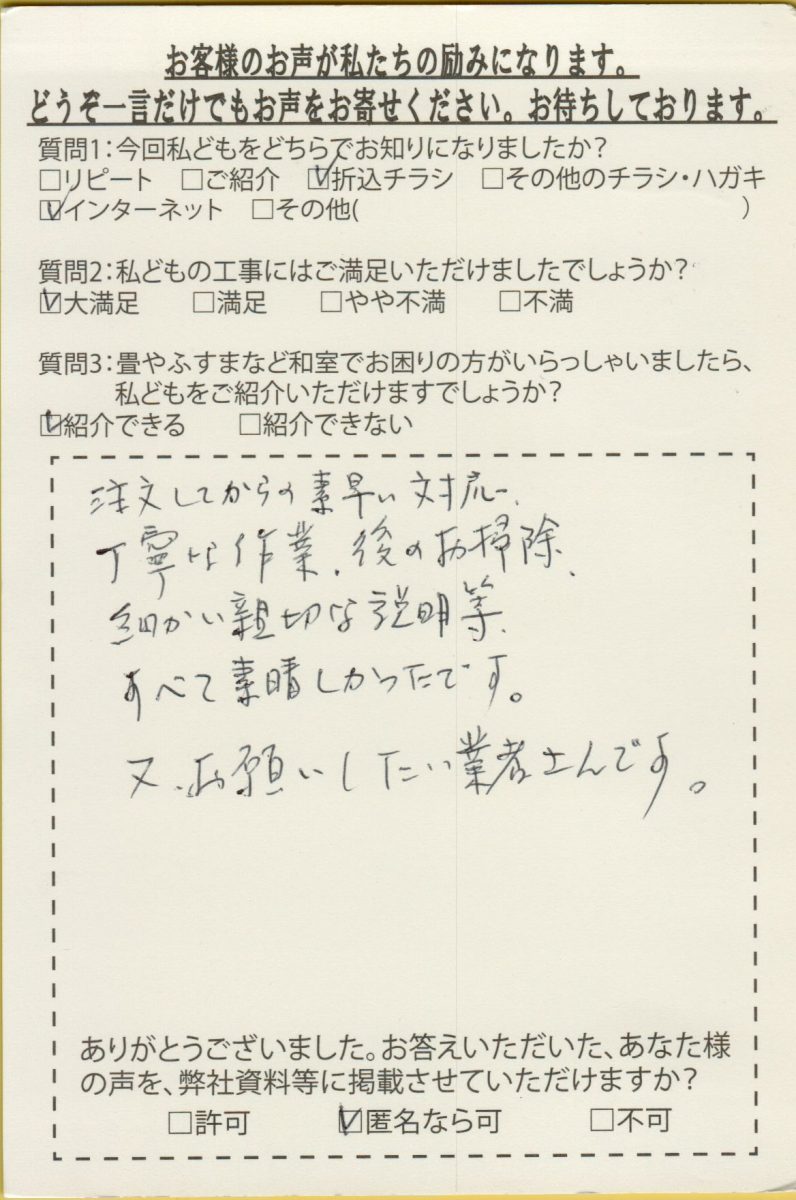 お客様のお声が私たちの励みになります。
どうぞ一言だけでもお声をお寄せください。お待ちしております。
質問1:今回私どもをどちらでお知りになりましたか?
□リピート □ご紹介 ☑折込チラシ □その他のチラシ・ハガキ
☑インターネット □その他( )
質問2:私どもの工事にはご満足いただけましたでしょうか?
☑大満足 □満足 □やや不満 □不満
質問3:畳やふすまなど和室でお困りの方がいらっしゃいましたら、
私どもをご紹介いただけますでしょうか?
☑紹介できる □紹介できない
注文してからの素早い対応、
丁寧な作業、後のお掃除、
細かい親切な説明等、
すべて素晴しかったです。
又、お願いしたい業者さんです。
ありがとうございました。お答えいただいた、あなた様
の声を、弊社資料等に掲載させていただけますか?
□許可 ☑匿名なら可 □不可